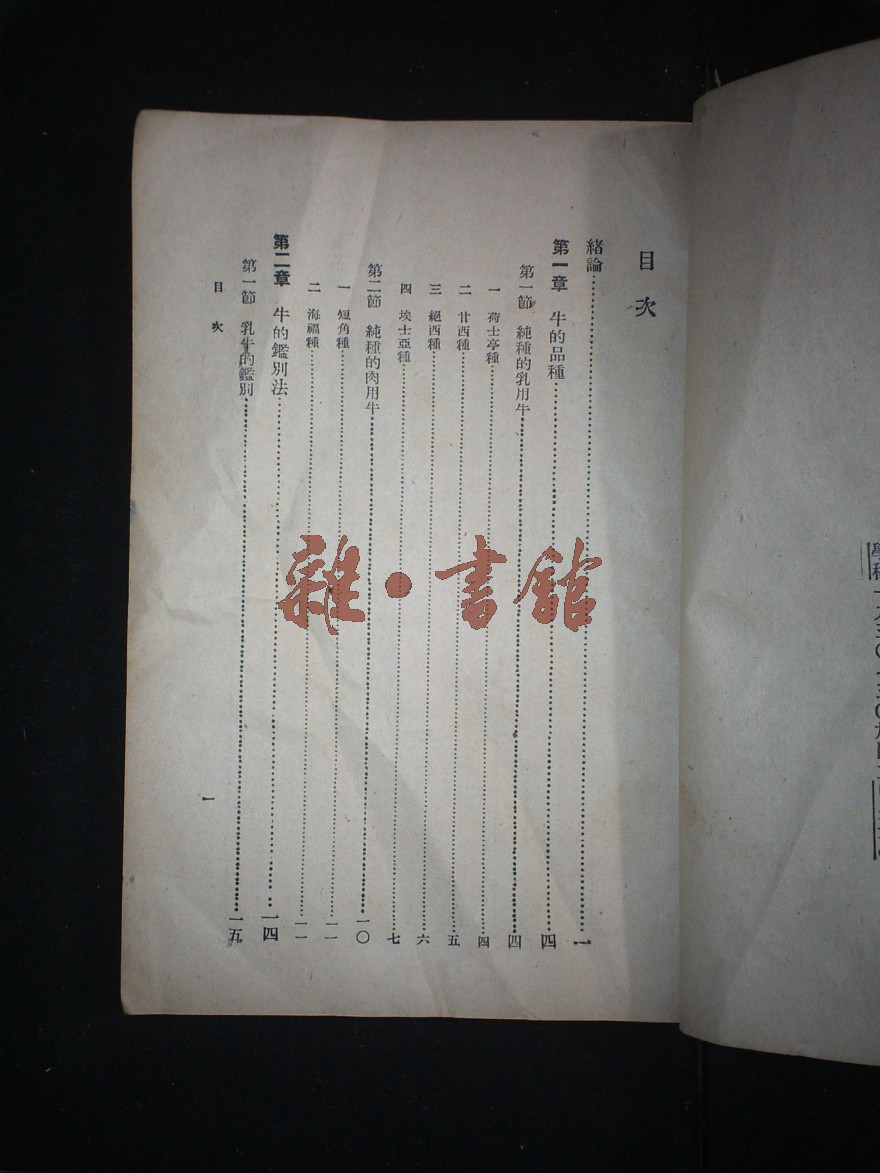 目次
緒論……一
第一章 牛的品種……四
第一節 純種的乳用牛……四
一 荷士亭種……四
二 甘西種……五
三 絕西種……六
四 埃士亞種……七
第二節 純種的肉用牛……一〇
一 短角種……一一
二 海福種……一一
第二章 牛的鑑別法……一四
第一節 乳牛的鑑別……一五
目次
一
雜·書館